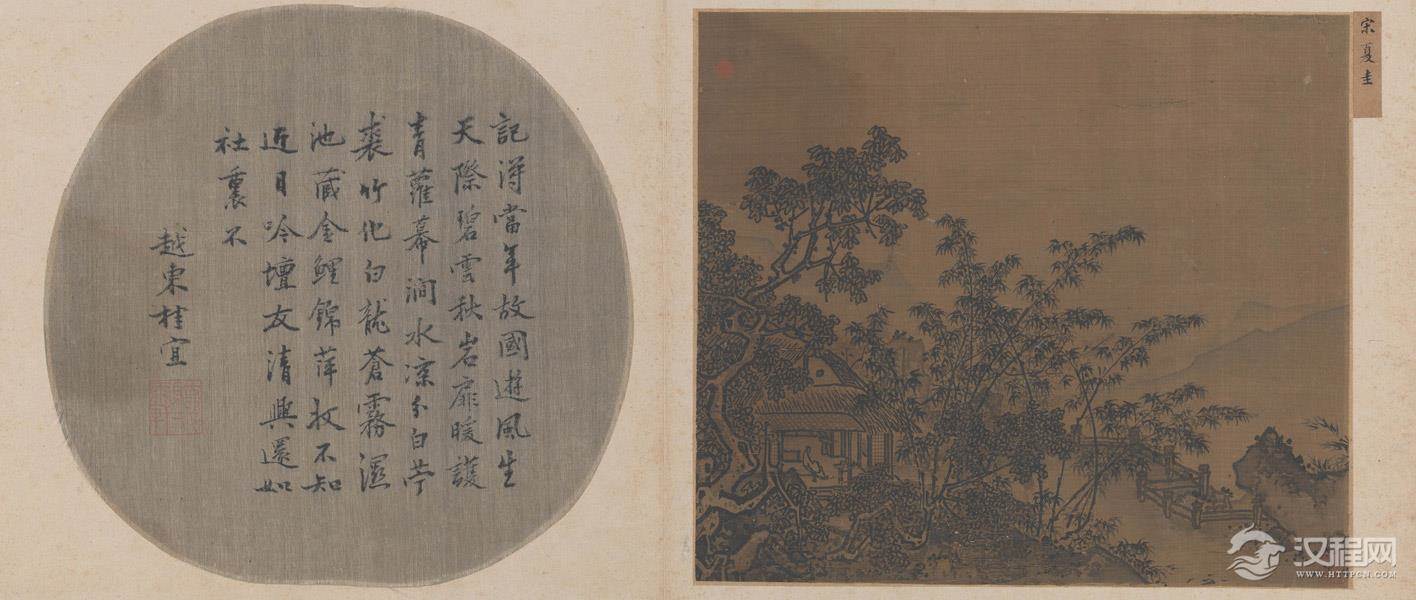 記得當年故國遊風生
天際碧雲秋岩扉暖護
青蘿幕澗水凉分白苧
裘竹化白龍蒼霧濕
池藏金鯉錦萍收不知
近日吟壇友清興還如
社裏不
越東桂宜
宋夏圭
汉程网
WWW.HTTPCN.COM